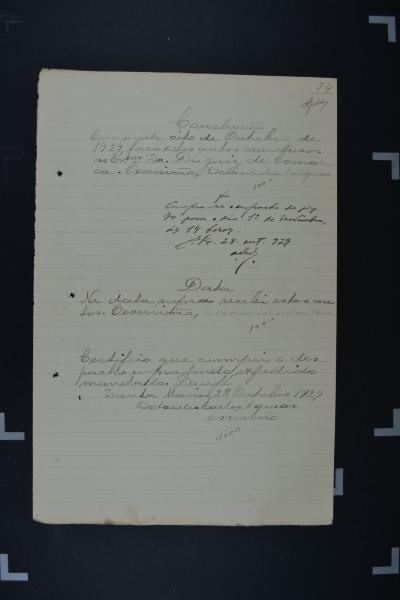 74
Conclusão
Em vinte oito de Outubro de
1929, faço estes autos conclusos
ao Exmo Sr. Dr. Juiz de Comar-
ca. O escrivão,
1000
Cumpra-se o despacho de fls
70 para o dia 1º de Novembro,
ás 14 horas.
28. out. 929
Data
Na data supra recebi estes au-
tos. O escrivão,
1000
Certifico que cumpri o des-
pacho supra, tendo expedido
mandado. Dou fé.
Santa Maria, 28 Outubro 1929
escrivão